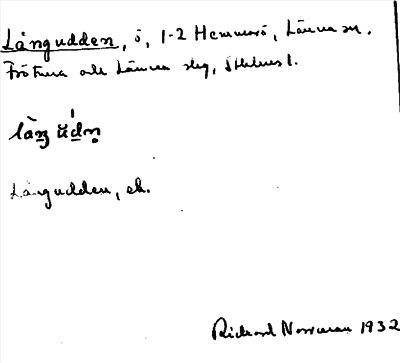 Långudden, ö, 1-2 Hemmarö, Länna sn.
Frötuna och Länna slg, Sthlms l.
làŋ ŭ́dn̥
Långudden, ek.
Rickard Norrman 1932